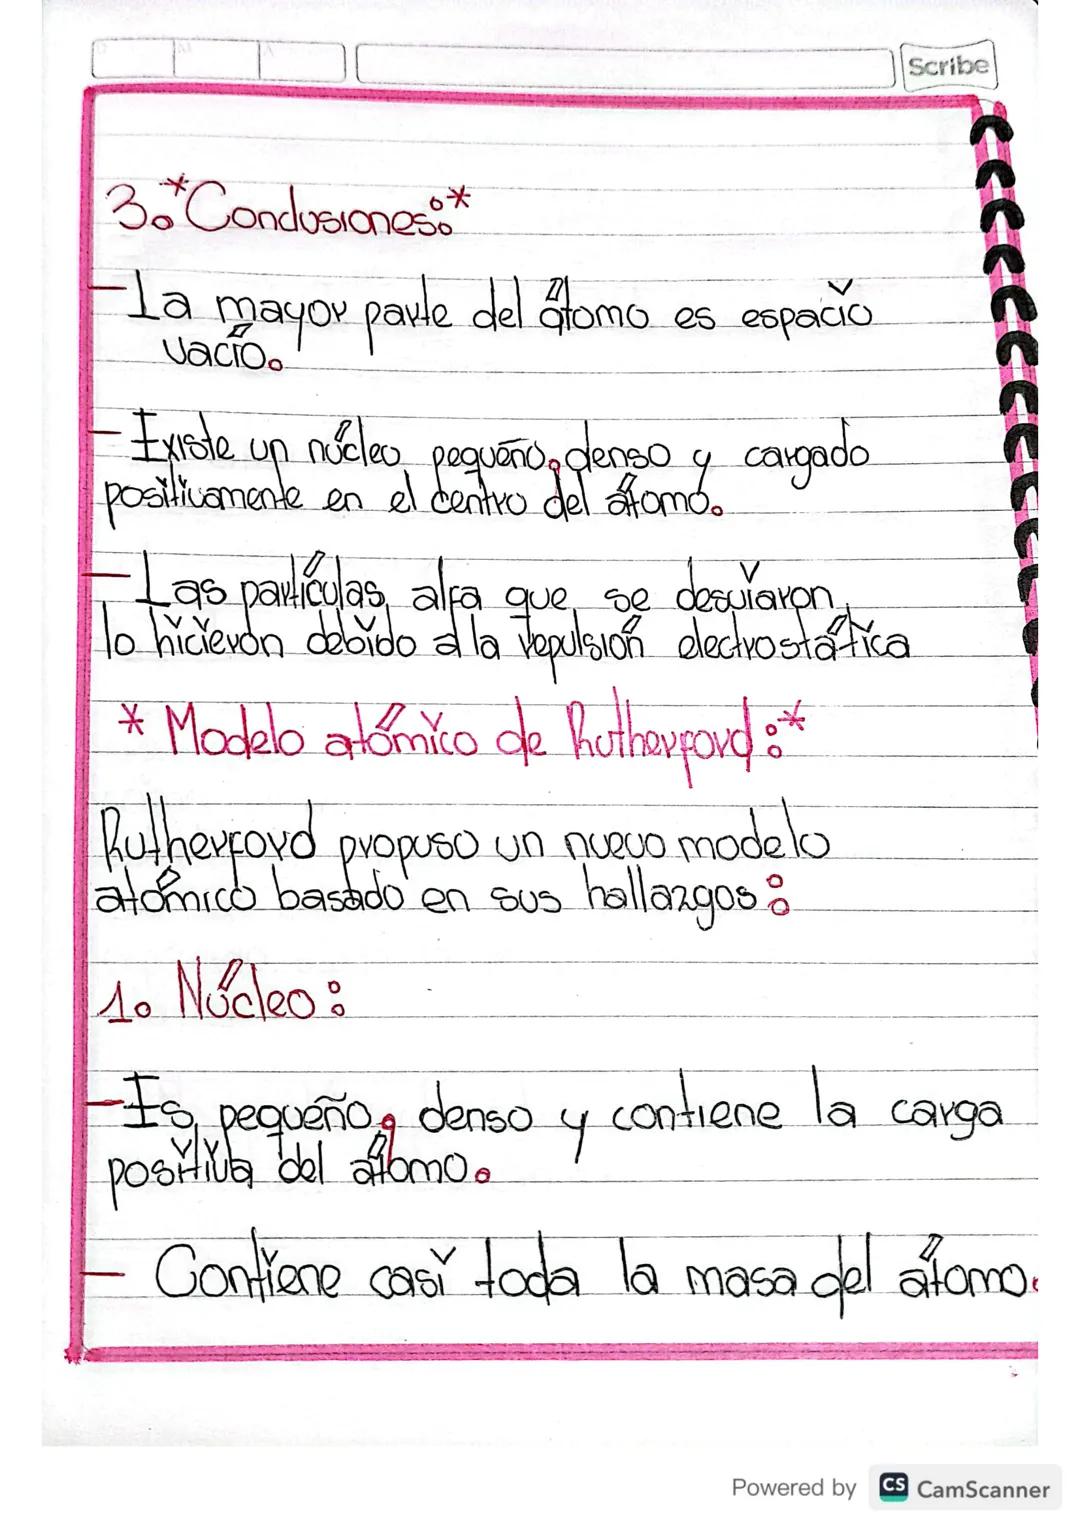 Scribe
3. *Conclusiones:*
- La mayor parte del átomo es espacio
vacío.
- Existe un núcleo pequeño, denso y cargado
positivamente en el centro del átomo.
- Las partículas alfa que se desviaron
lo hicieron debido a la repulsión electrostática
* Modelo atómico de Rutherford:*
Rutherford propuso un nuevo modelo
atómico basado en sus hallazgos:
1. Núcleo:
- Es pequeño, denso y contiene la carga
positiva del átomo.
- Contiene casi toda la masa del átomo.
Powered by CS CamScanner